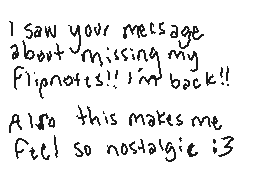 I saw your message
about missing my
flipnotes!! I'm back!!
Also this makes me
feel so nostalgic :3